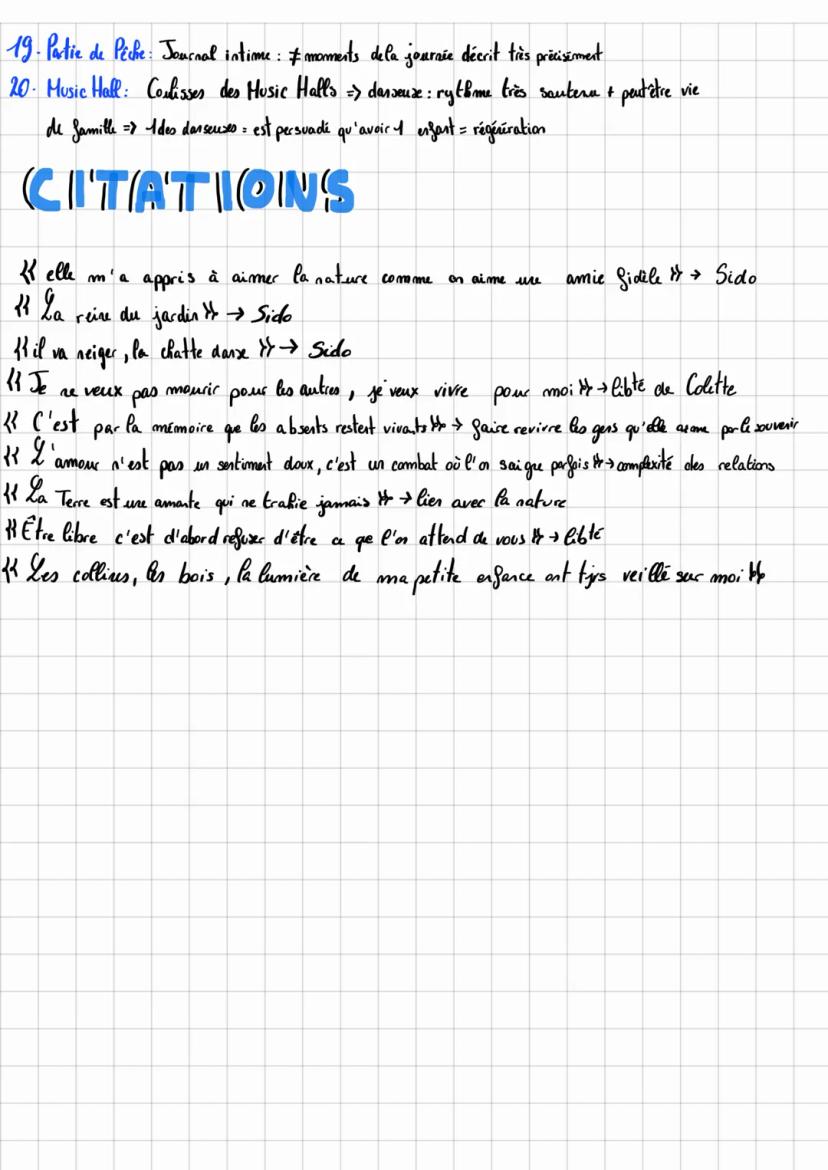 19. Partie de Pêche : Journal intime : ≠ moments de la journée décrit très précisément
20. Music Hall : Coulisses des Music Halls => danseuse : rythme très soutenu + peut être vie
de famille => 1 des danseuses = est persuadé qu'avoir 1 enfant = régénération
CITATIONS
« elle m'a appris à aimer la nature comme on aime une amie fidèle » → Sido
« La reine du jardin » → Sido
« il va neiger, la chatte danse » → Sido
« Je ne veux pas mourir pour les autres, je veux vivre pour moi » → libté de Colette
« C'est par la mémoire que les absents restent vivants » → faire revivre les gens qu'elle aime par le souvenir
« L'amour n'est pas un sentiment doux, c'est un combat où l'on saigne parfois » → complexité des relations
« La Terre est une amante qui ne trahie jamais » → lien avec la nature
« Être libre c'est d'abord refuser d'être ce que l'on attend de vous » → libté
« Les collines, les bois, la lumière de ma petite enfance ont tjrs veillé sur moi »